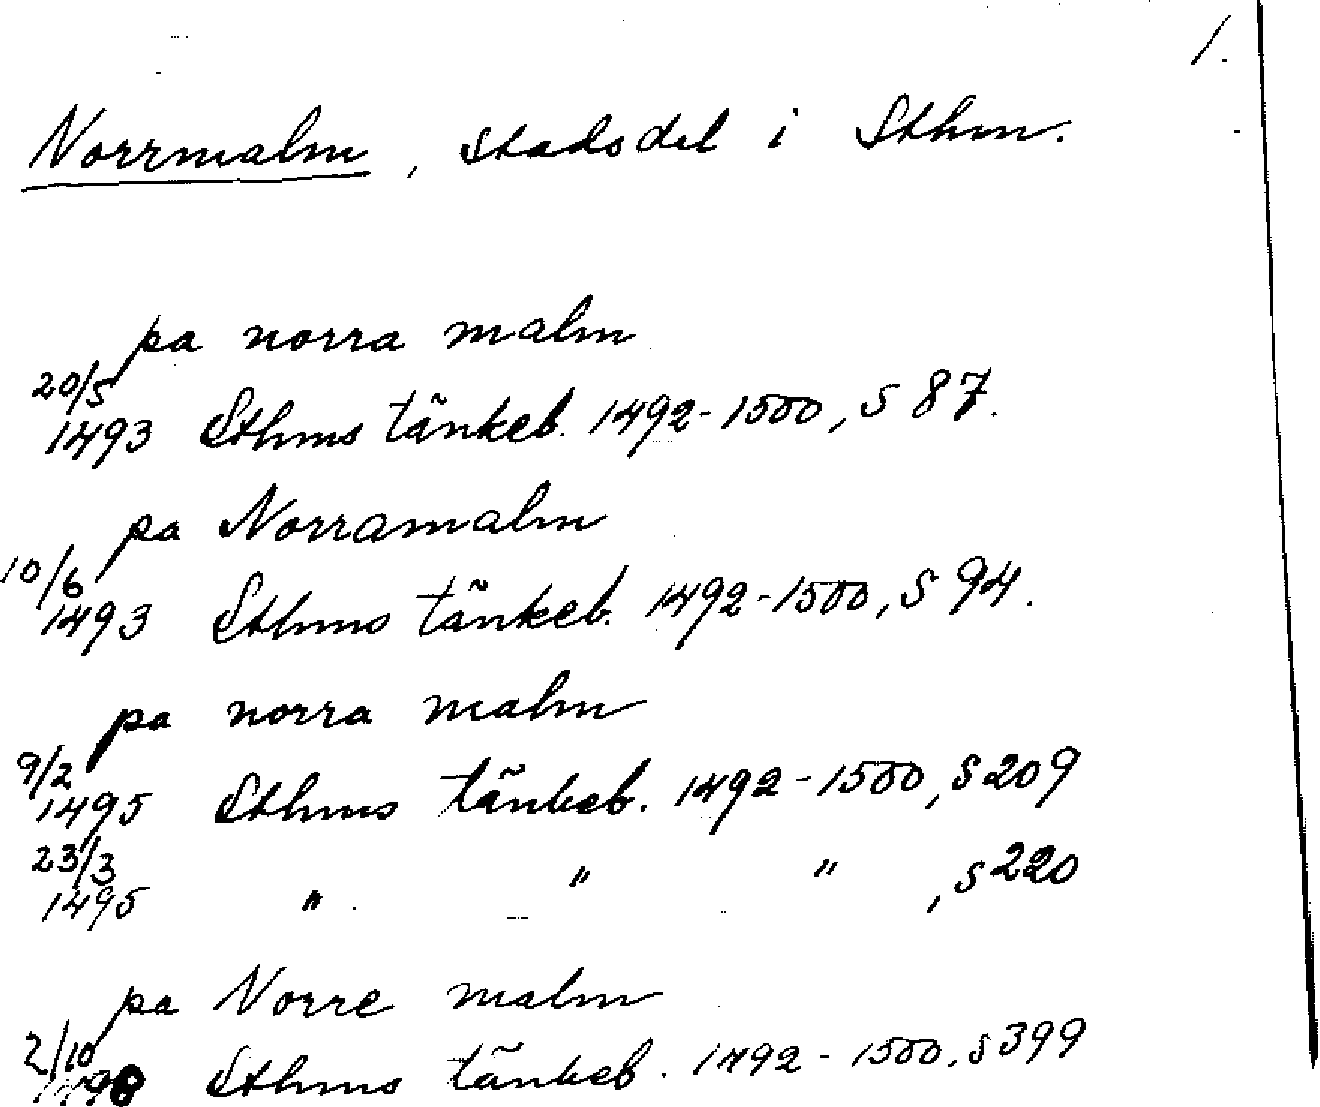 1.
Norrmalm, stadsdel i Sthm.
pa norra malm
20/5
1493 Sthms tänkeb. 1492-1500, s 87.
pa Norramalm
10/6
1493 Sthms tänkeb. 1492-1500, s 94.
pa norra malm
9/2
1495 Sthms tänkeb. 1492-1500, s 209
23/3
1495 " " " , s 220
pa Norre malm
2/10
1498 Sthms tänkeb. 1492-1500, s 399